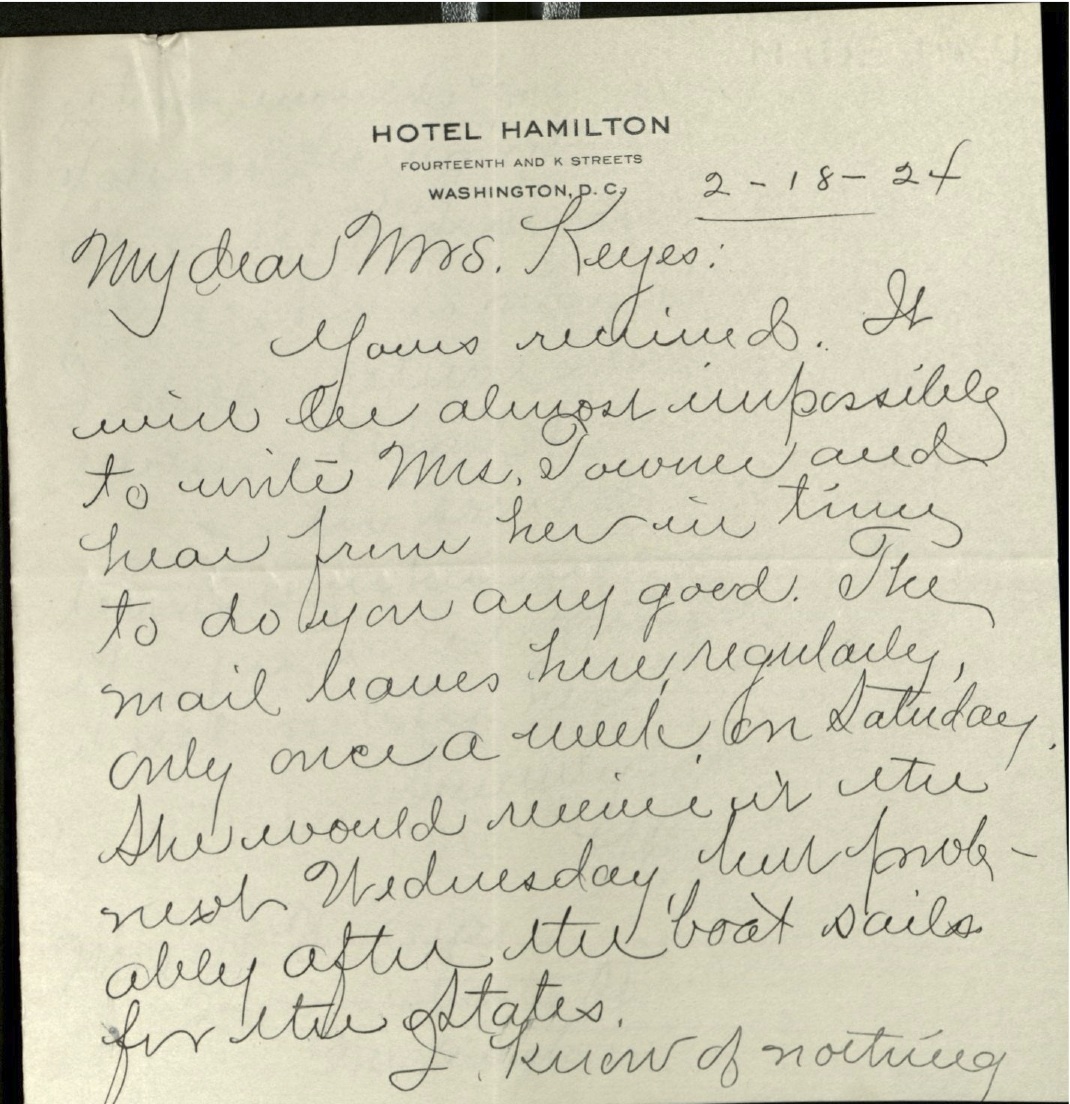 HOTEL HAMILTON
FOURTEENTH AND K STREETS
WASHINGTON, D. C.
2 - 18 - 24
My dear Mrs. Keyes:
Yours received. It
will be almost impossible
to write Mrs. Towner and
hear from her in time
to do you any good. The
mail leaves here, regularly,
only once a week, on Saturday.
She would receive it the
next Wednesday, but prob-
ably after the boat sails
for the States.
I know of nothing